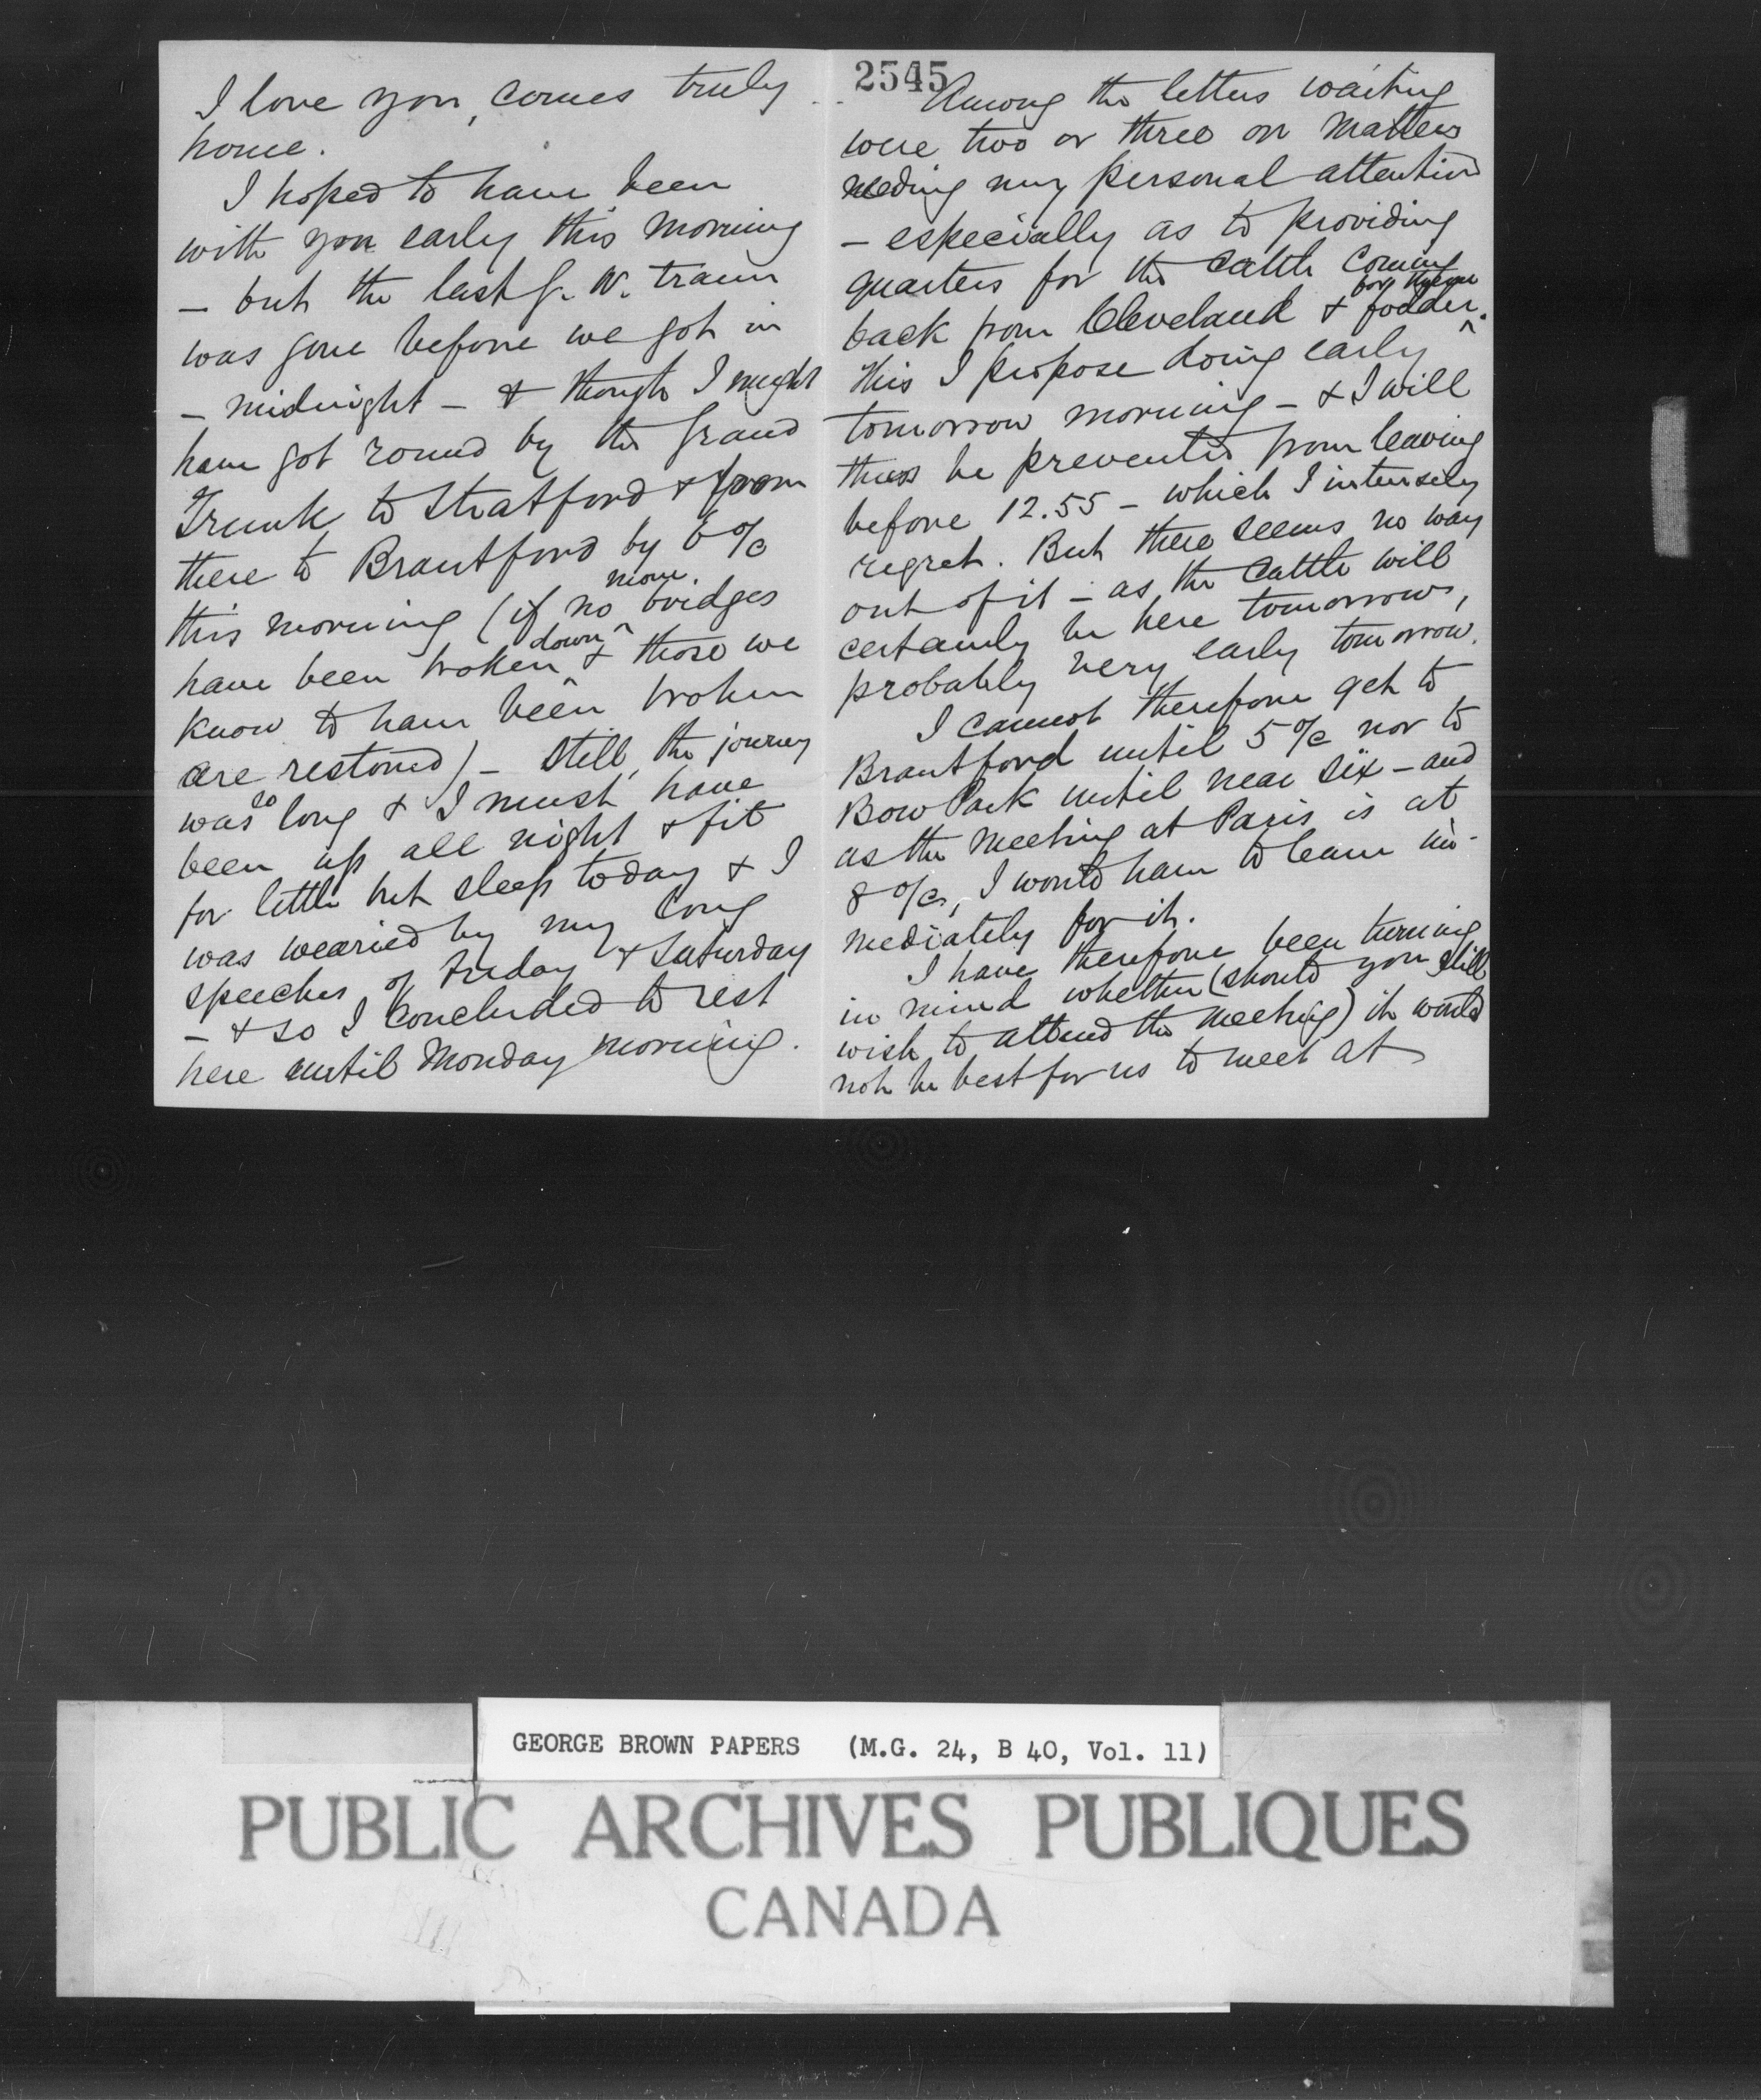 I love you, comes truly
home.
I hoped to have been
with you early this morning
- but the last G. W. train
was gone before we got in
- midnight - & though I might
have got round by the Grand
Trunk to Stratford & from
there to Brantford by 6 o/c
this morning (if no more bridges
have been broken down & those we
know to have been broken
are restored) - still, the journey
was so long & I must have
been up all night & fit
for little but sleep today & I
was wearied by my long
speeches of Friday & Saturday
- & so I concluded to rest
here until Monday morning.
2545
Among the letters waiting
were two or three on matters
needing my personal attention
- especially as to providing
quarters for the cattle coming
back from Cleveland & fodder for them.
This I propose doing early
tomorrow morning - & I will
thus be prevented from leaving
before 12.55 - which I intensely
regret. But there seems no way
out of it - as the cattle will
certainly be here tomorrow,
probably very early tomorrow.
I cannot therefore get to
Brantford until 5 o/c nor to
Bow Park until near six - and
as the meeting at Paris is at
8 o/c, I would have to leave im-
mediately for it.
I have therefore been turning
in mind whether (should you still
wish to attend the meeting) it would
not be best for us to meet at
GEORGE BROWN PAPERS (M.G. 24, B 40, Vol. 11)
PUBLIC ARCHIVES PUBLIQUES
CANADA